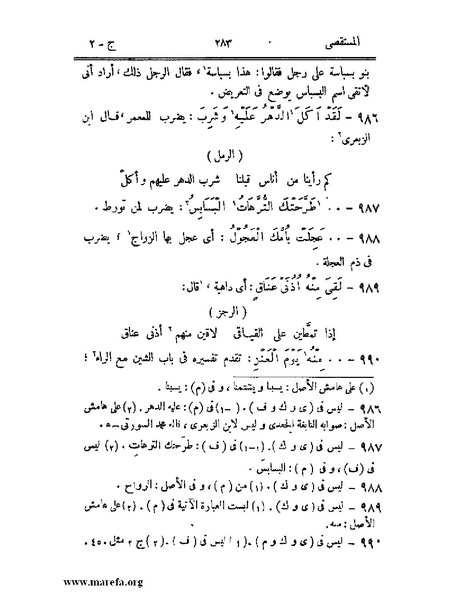 المستقصى ٢٨٣ ج - ٢
بنو بسباسة على رجل فقالوا: هذا بسباسة١، فقال الرجل ذلك، أراد أنى
لاتقى اسم البسباس يوضع فى التعريض.
٩٨٦ - لَقَدْ آكَلَ ١الدَّهْرُ عَلَيْهِ١ وَشَرِبَ: يضرب للمعمر، قال ابن
الزبعرى٢:
(الرمل)
كم رأينا من أناس قبلنا شرب الدهر عليهم وأكل
٩٨٧ - ٠٠ ١طَرَّحَتْكَ التُّرَّهَاتُ١ البَسَابِسُ٢: يضرب لمن تورط.
٩٨٨ - ٠٠ عَجِلَتْ بِأُمِّكَ الْعَجُولُ: أى عجل بها الزواج١؛ يضرب
فى ذم العجلة.
٩٨٩ - لَقِىَ مِنْهُ أُذُنَىْ عَنَاقٍ: أى داهية، ١قال:
(الرجز)
إذا تمطّين على القياقى لاقين منهم٢ أذنى عناق
٩٩٠ - ٠٠ مِنْهُ١ يَوْمَ الْعَنْزِ: تقدم تفسيره فى باب الشين مع الراء٢؛
(١) على هامش الأصل: يسبا ويشتما، و فى (م): يسبنا.
٩٨٦ - ليس فى (ى و ك و ف). (١-١) فى (م): عليه الدهر. (٢) على هامش
الأصل: صوابه النابغة الجعدى وليس لابن الزبعرى، قاله محمد السورتى
٩٨٧ - ليس فى (ى و ك). (١-١) فى (ف): طرّحتك الترهات. (٢) ليس
فى (ف)، و فى (م): البسابس.
٩٨٨ - ليس فى (ى و ك). (١) من (م)، و فى الأصل: الرواح.
٩٨٩ - ليس فى (ى و ك). (١) ليست العبارة الآتية فى (م). (٢) على هامش
الأصل: منه.
٩٩٠ - ليس فى (ى و ك و م). (١) ليس فى (ف). (٢) ج ٢ مثل ٤٥٠.
www.marefa.org